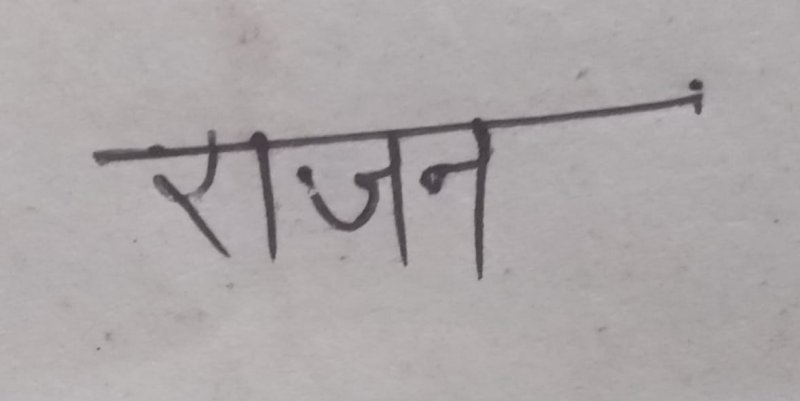 राजन